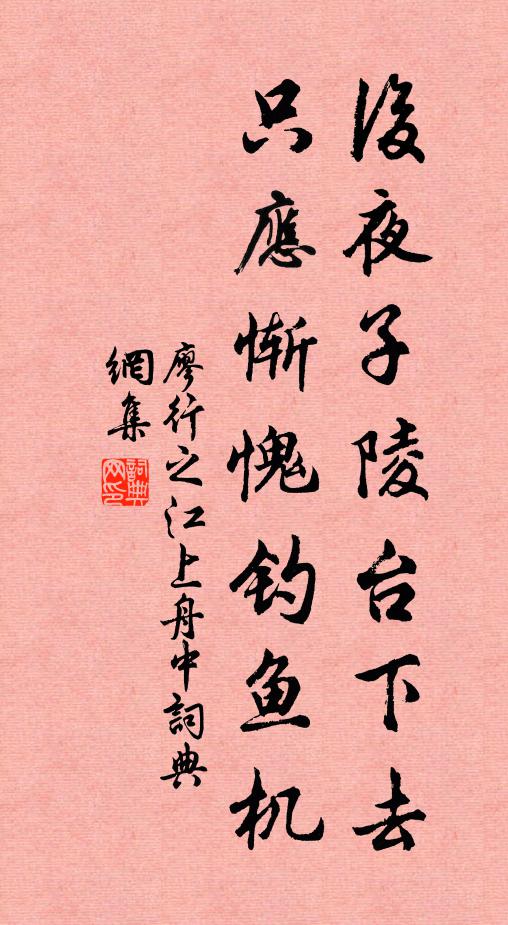 後夜子陵台下去
只應慚愧钓鱼机
廖行之江上舟中詞典
網集
詞典网印